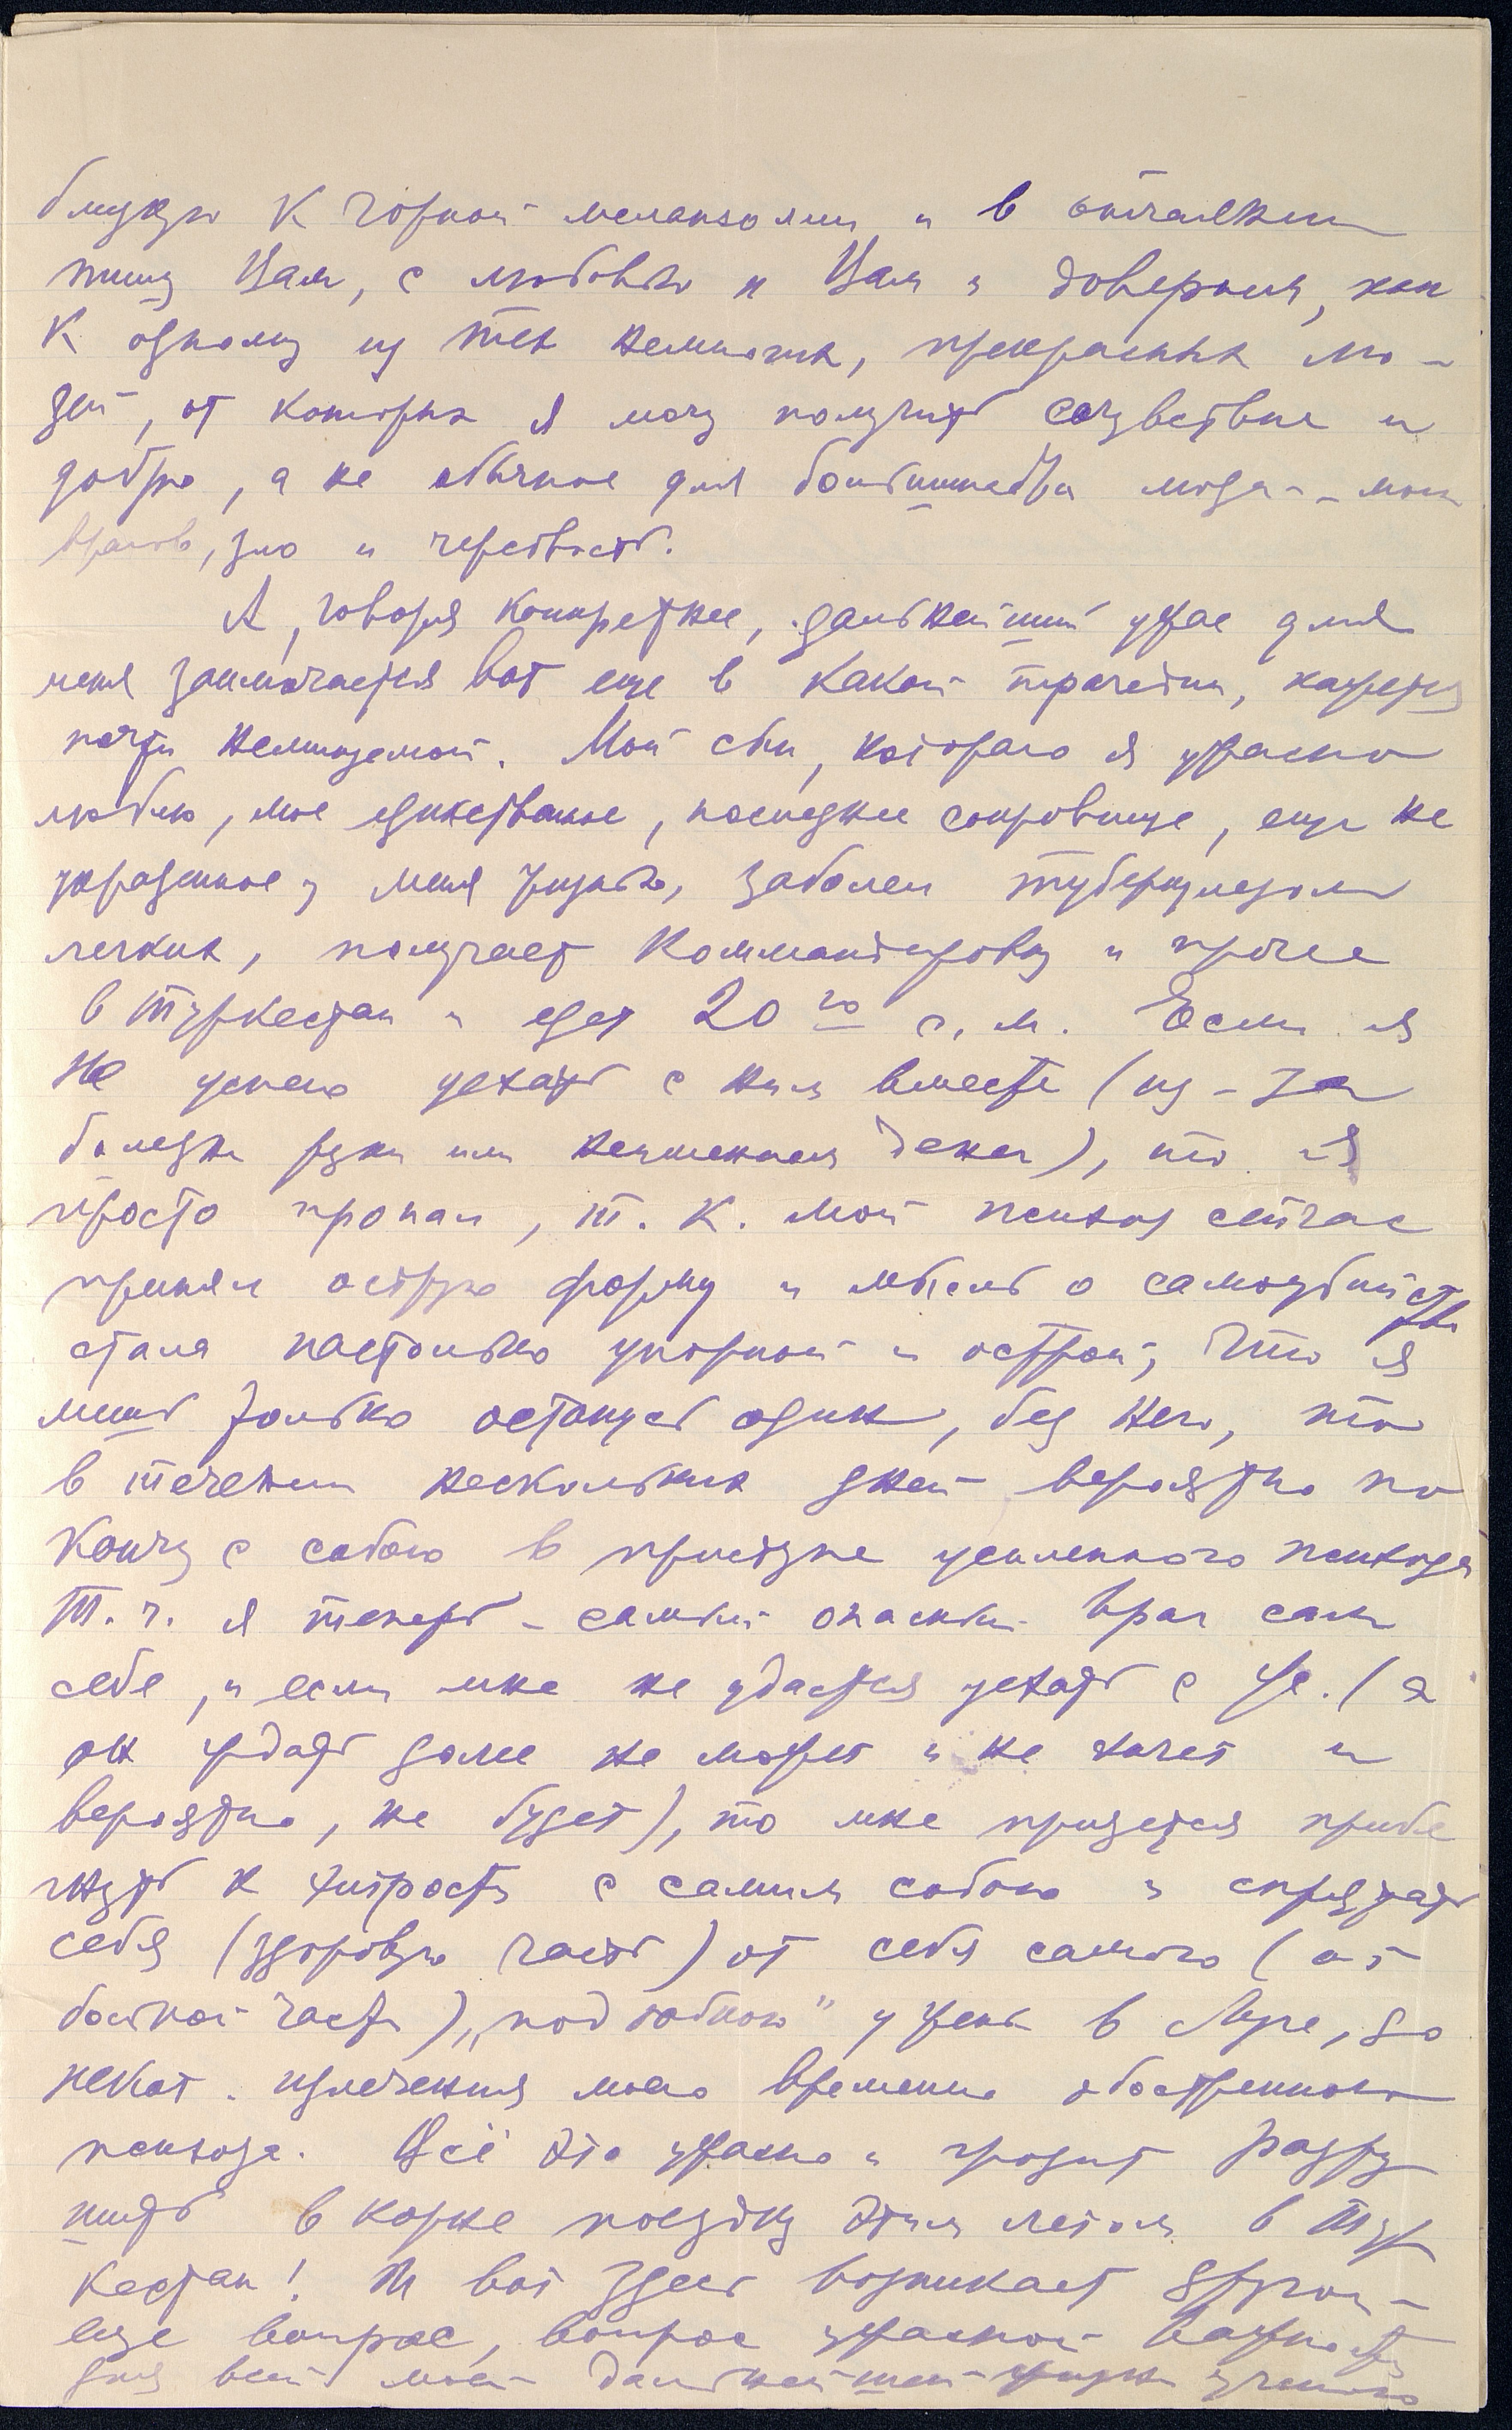 близко к чорной меланхолии и в отчаянии
пишу Вам, с любовью к Вам и доверием, как
к одному из тех немногих, прекрасных лю-
дей, от которых я могу получить сочувствие и
добро, а не обычное для большинства людей - моих
врагов, зло и черствость.
А, говоря конкретнее, дальнейший ужас для
меня заключается вот еще в какой трагедии, кажется
почти неминуемой. Мой сын, которого я ужасно
люблю, мое единственное, последнее сокровище, еще не
украденное у меня жизнью, заболел туберкулезом
легких, получает коммандировку и проч.
в Туркестан и едет 20го с. м. Если я
не успею уехать с ним вместе (из-за
болезни руки или неимения денег), то я
просто пропал, т. к. мой психоз сейчас
принял острую форму и мысль о самоубийстве
стала настолько упорной и острой, что я
лишь только останусь один, без него, то
в течении нескольких дней вероятно по
кончу с собою в приступе усиленного психоза
Т. ч. я теперь - самый опасный враг сам
себе, и если мне не удастся уехать с (а
он ждать долее не может и не хочет и
вероятно, не будет), то мне придется прибе
гнуть к хитрости с самим собою и спрятать
себя (здоровую часть) от себя самого (от
больной части), в до
некот. излечения моего временно обостренного
психоза. Всё это ужасно и грозит разру
шить в корне поездку этим летом в Тур
кестан! И вот здесь возникает другой
еще вопрос, вопрос ужасной важности
для всей моей дальнейшей жизни